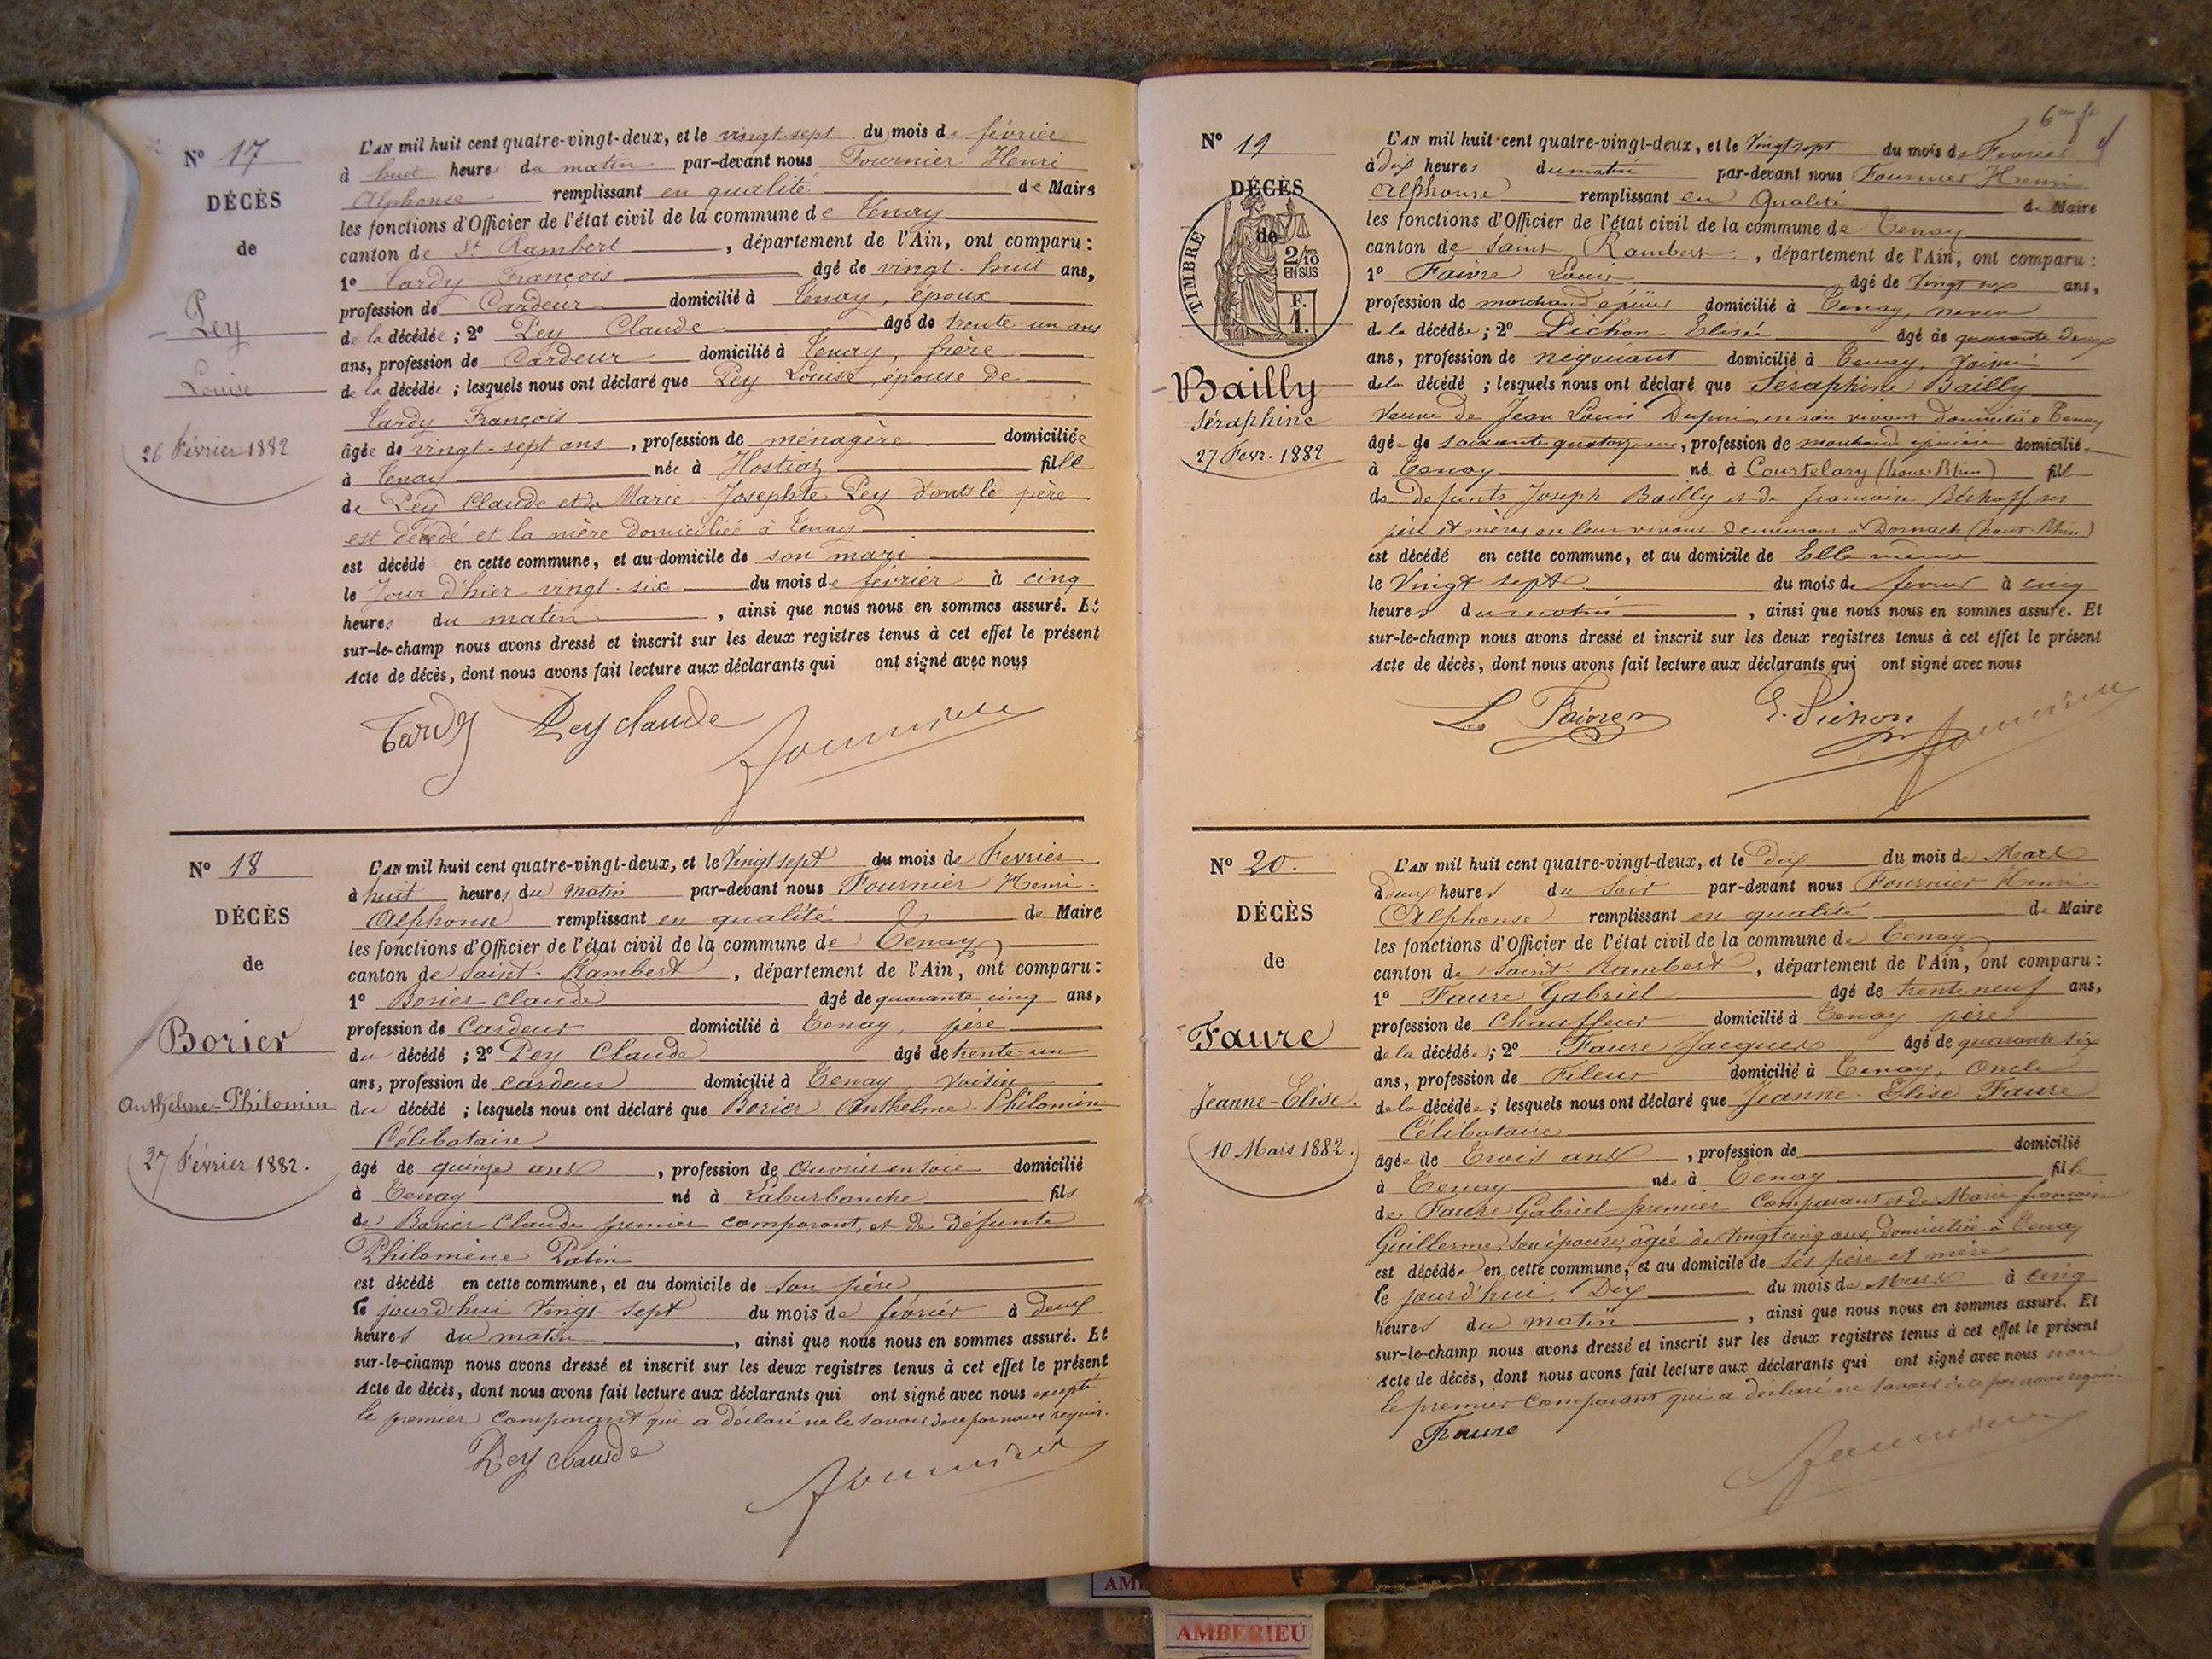 N° 17
DÉCÈS
de
Pey
Louise
26 Février 1882
L'AN mil huit cent quatre-vingt-deux, et le vingt-sept du mois de février
à huit heures du matin par-devant nous Fournier Henri
Alphonse remplissant en qualité de Maire
les fonctions d'Officier de l'état civil de la commune de Tenay
canton de St Rambert, département de l'Ain, ont comparu :
1° Tardy François âgé de vingt-huit ans,
profession de Cardeur domicilié à Tenay, époux
de la décédée ; 2° Pey Claude âgé de trente-un ans
ans, profession de Cardeur domicilié à Tenay, frère
de la décédée ; lesquels nous ont déclaré que Pey Louise, épouse de
Tardy François
âgée de vingt-sept ans, profession de ménagère domiciliée
à Tenay née à Hostiaz fille
de Pey Claude et de Marie-Josephte Pey dont le père
est décédé et la mère domiciliée à Tenay
est décédé en cette commune, et au domicile de son mari
le Jour d'hier vingt-six du mois de février à cinq
heures du matin, ainsi que nous nous en sommes assuré. Et
sur-le-champ nous avons dressé et inscrit sur les deux registres tenus à cet effet le présent
Acte de décès, dont nous avons fait lecture aux déclarants qui ont signé avec nous
Tardy Pey claude Fournier
N° 18
DÉCÈS
de
Borier
Anthelme-Philomin
27 Février 1882.
L'AN mil huit cent quatre-vingt-deux, et le Vingt sept du mois de Fevrier
à huit heures du matin par-devant nous Fournier Henri-
Alphonse remplissant en qualité de Maire
les fonctions d'Officier de l'état civil de la commune de Tenay
canton de Saint-Rambert, département de l'Ain, ont comparu :
1° Borier Claude âgé de quarante cinq ans,
profession de Cardeur domicilié à Tenay, père
du décédé ; 2° Pey Claude âgé de trente-un
ans, profession de cardeur domicilié à Tenay, Voisin
du décédé ; lesquels nous ont déclaré que Borier Anthelme-Philomin
Célibataire
âgé de quinze ans, profession de Ouvrier en soie domicilié
à Tenay né à Laburbanche fils
de Borier Claude premier comparant, et de défunte
Philomène Patin
est décédé en cette commune, et au domicile de son père
le jourd'hui Vingt-sept du mois de février à deux
heures du matin, ainsi que nous nous en sommes assuré. Et
sur-le-champ nous avons dressé et inscrit sur les deux registres tenus à cet effet le présent
Acte de décès, dont nous avons fait lecture aux déclarants qui ont signé avec nous excepté
le premier comparant qui a déclaré ne le savoir de ce par nous requis.
Pey claude Fournier
N° 19
DÉCÈS
de
TIMBRE
2/10
EN SUS
F.
1.
Bailly
Séraphine
27 Fevr. 1882
L'AN mil huit-cent quatre-vingt-deux, et le Vingt sept du mois de Fevrier
à dix heures du matin par-devant nous Fournier Henri
Alphonse remplissant en Qualité de Maire
les fonctions d'Officier de l'état civil de la commune de Tenay
canton de Saint Rambert, département de l'Ain, ont comparu :
1° Faivre Louis âgé de Vingt six ans,
profession de marchand épicier domicilié à Tenay, neveu
de la décédée ; 2° Pichon Elisée âgé de quarante deux
ans, profession de négociant domicilié à Tenay, Voisin
de la décédé ; lesquels nous ont déclaré que Séraphine Bailly
Veuve de Jean Louis en son vivant domicilié à Tenay
âgée de soixante quatorze ans, profession de marchande épicière domicilié
à Tenay né à Courtelary (haut-Rhin) fill
de defunts Joseph Bailly et de françoise ses
père et mère en leur vivant demeurant à Dornach (haut-Rhin)
est décédé en cette commune, et au domicile de Elle même
le Vingt sept du mois de fevrier à cinq
heures du matin, ainsi que nous nous en sommes assuré. Et
sur-le-champ nous avons dressé et inscrit sur les deux registres tenus à cet effet le présent
Acte de décès, dont nous avons fait lecture aux déclarants qui ont signé avec nous
Ls Faivre E. Pichon Fournier
N° 20.
DÉCÈS
de
Faure
Jeanne-Elise.
10 Mars 1882.
L'AN mil huit cent quatre-vingt-deux, et le Dix du mois de Mars
à deux heures du Soir par-devant nous Fournier Henri-
Alphonse remplissant en qualité de Maire
les fonctions d'Officier de l'état civil de la commune de Tenay
canton de Saint-Rambert, département de l'Ain, ont comparu :
1° Faure Gabriel âgé de trente neuf ans,
profession de Chauffeur domicilié à Tenay père
de la décédée ; 2° Faure Jacques âgé de quarante six
ans, profession de Fileur domicilié à Tenay, Oncle
de la décédée ; lesquels nous ont déclaré que Jeanne-Elise Faure
Célibataire
âgée de Trois ans, profession de domicilié
à Tenay née à Tenay fille
de Faure Gabriel premier Comparant et de Marie-françoise
Guillerme, son épouse, âgée de Vingt cinq ans, domiciliée à Tenay
est décédée en cette commune, et au domicile de ses père et mère
le jourd'hui, Dix du mois de Mars à cinq
heures du matin, ainsi que nous nous en sommes assuré. Et
sur-le-champ nous avons dressé et inscrit sur les deux registres tenus à cet effet le présent
Acte de décès, dont nous avons fait lecture aux déclarants qui ont signé avec nous non
le premier comparant qui a déclaré ne savoir de ce par nous requis.
Faure Fournier
AMBERIEU